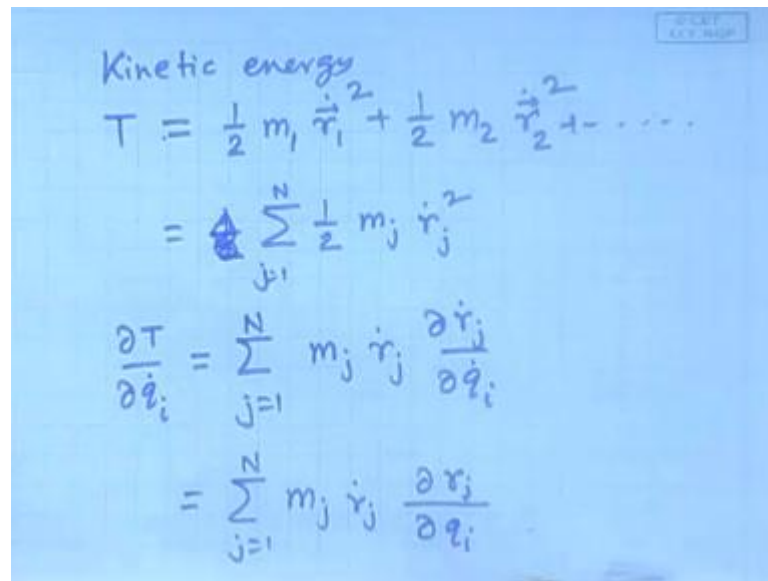 Kinetic energy
T = ½ m₁ ṙ⃗₁² + ½ m₂ ṙ⃗₂² + - ....
= ∑_{j=1}^{N} ½ m_j ṙ_j²
∂T/∂q̇_i = ∑_{j=1}^{N} m_j ṙ_j ∂ṙ_j/∂q̇_i
= ∑_{j=1}^{N} m_j ṙ_j ∂r_j/∂q_i